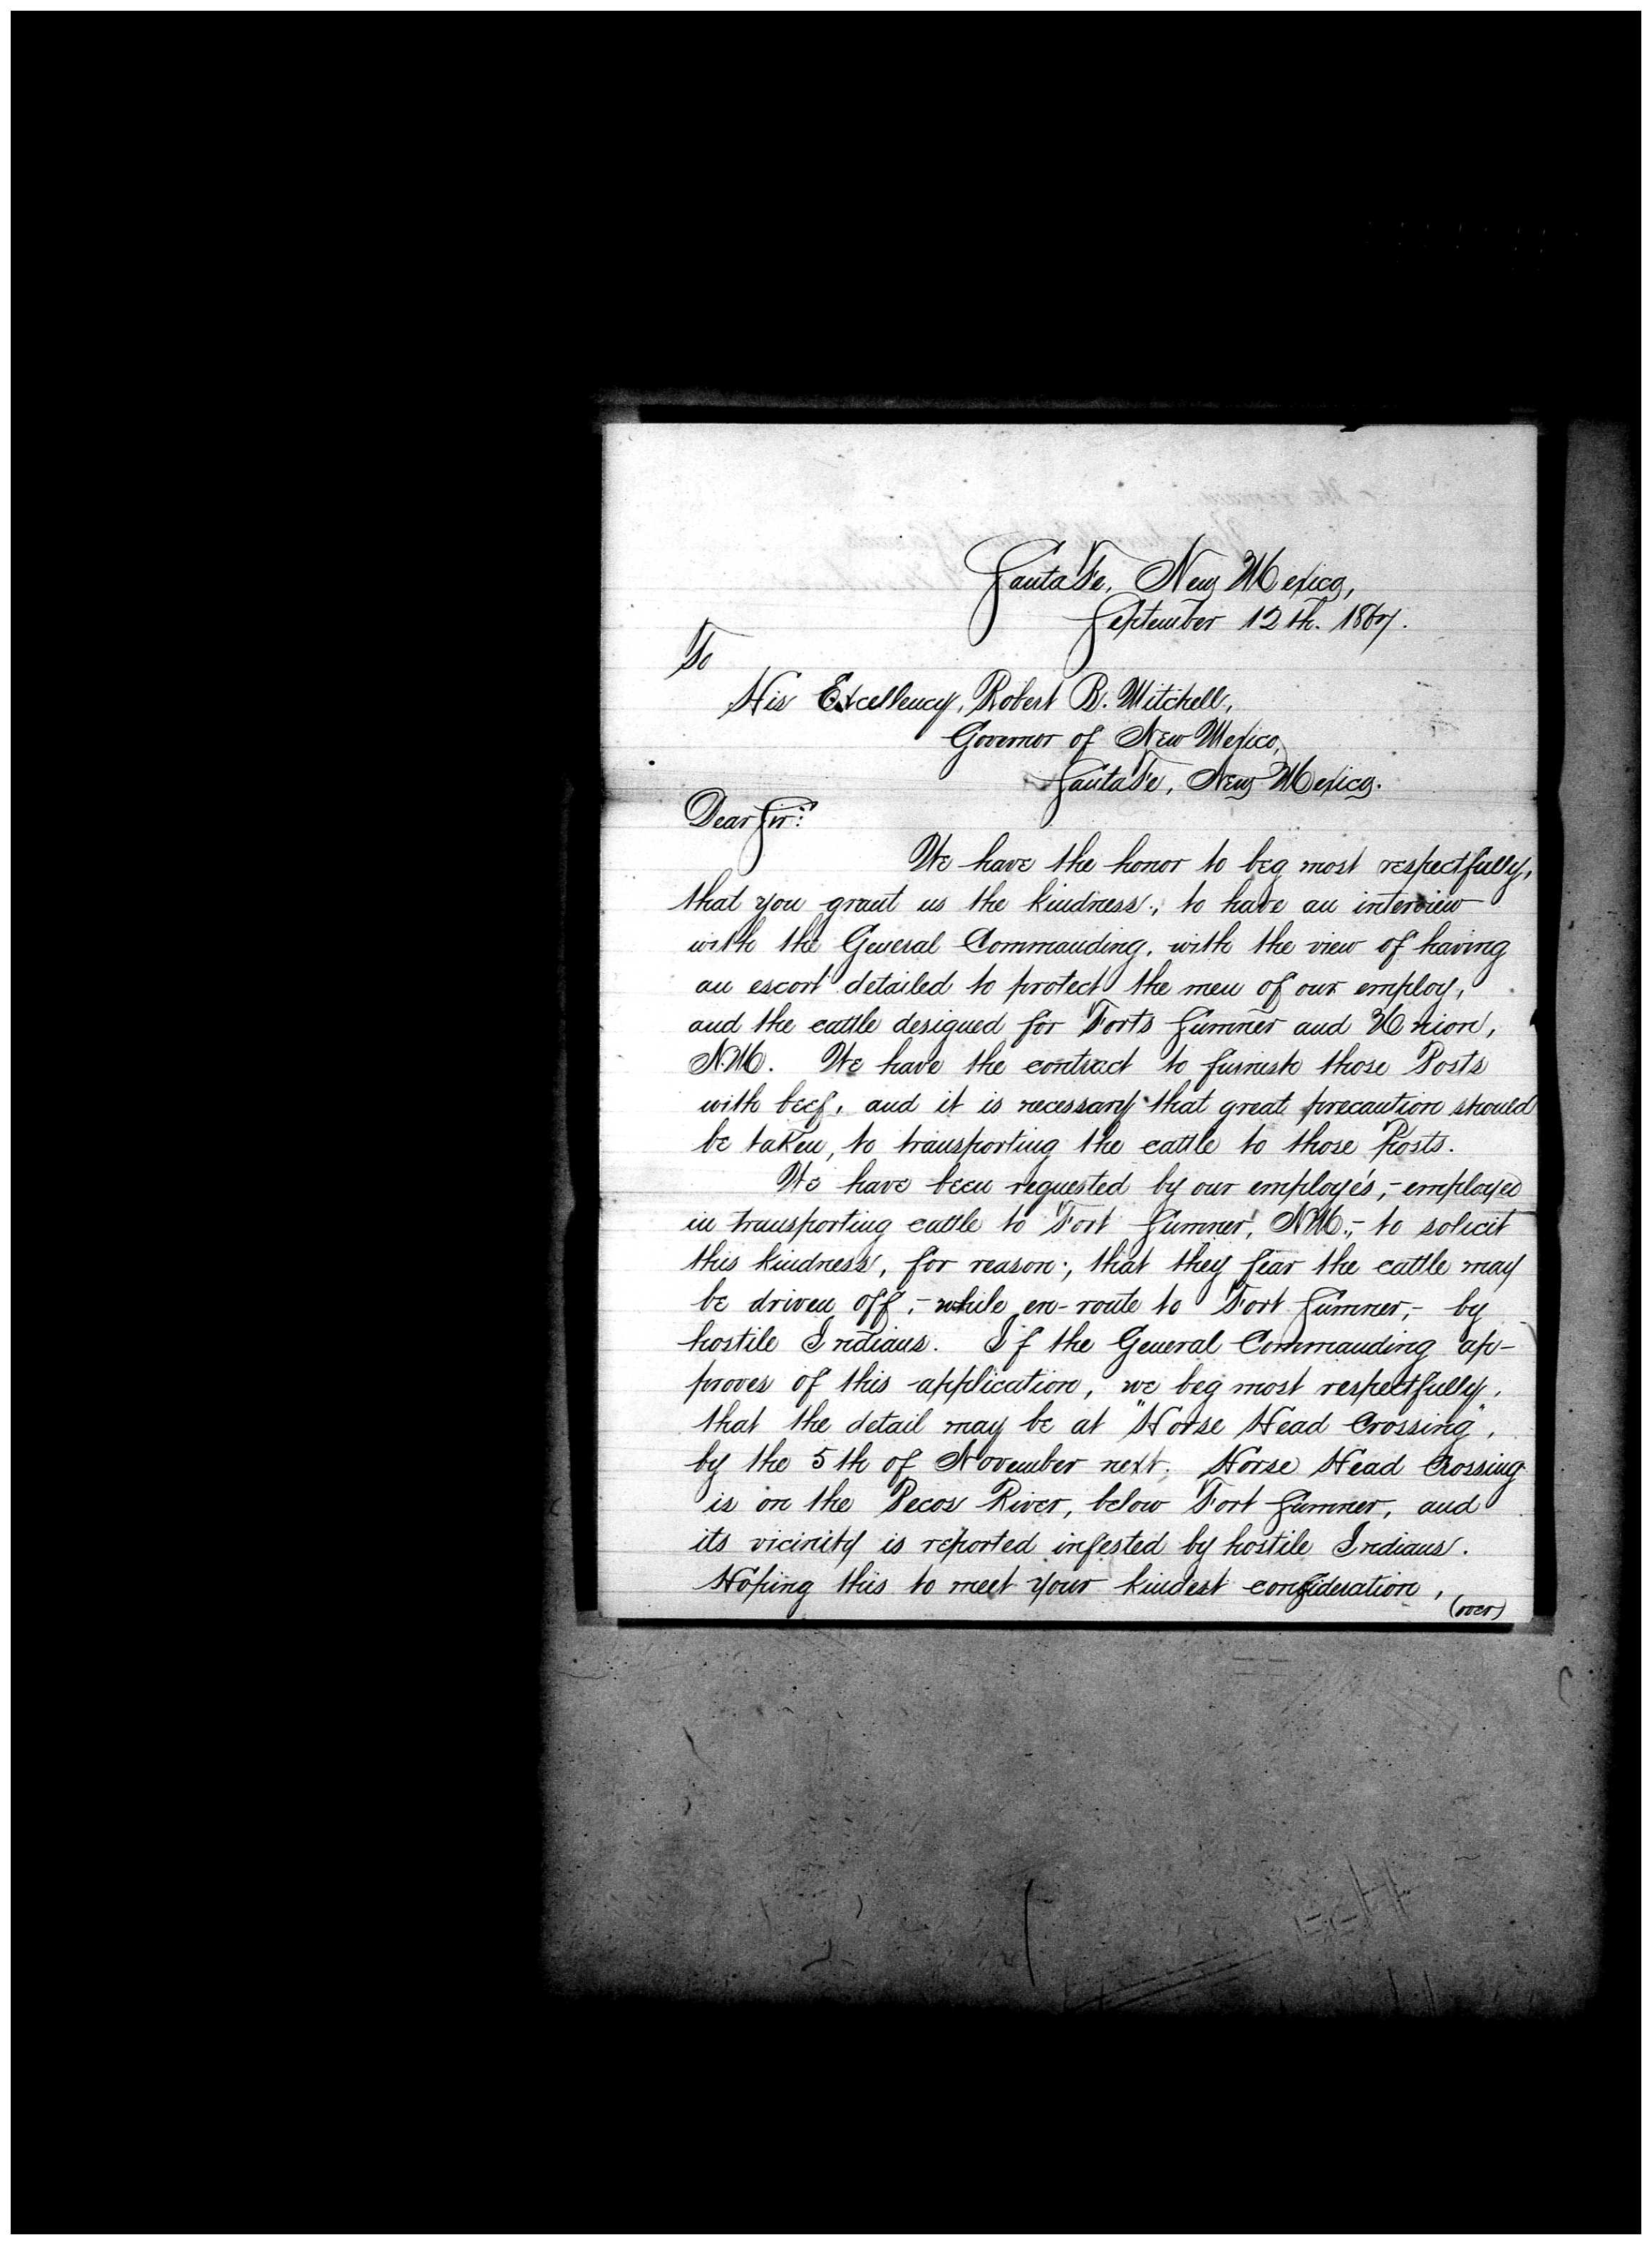 Santa Fe, New Mexico,
September 12th. 1867.
To
His Excellency, Robert B. Mitchell,
Governor of New Mexico,
Santa Fe, New Mexico.
Dear Sir:
We have the honor to beg most respectfully,
that you grant us the kindness., to have an interview
with the General Commanding, with the view of having
an escort detailed to protect the men of our employ,
and the cattle designed for Forts Sumner and Union,
N.M. We have the contract to furnish those Posts
with beef, and it is necessary that great precaution should
be taken, to transporting the cattle to those Posts.
We have been requested by our employés,- employed
in transporting cattle to Fort Sumner, N.M.,- to solicit
this kindness, for reason;, that they fear the cattle may
be driven off,- while en-route to Fort Sumner,- by
hostile Indians. If the General Commanding ap-
proves of this application, we beg most respectfully,
that the detail may be at "Horse Head Crossing",
by the 5th of November next. Horse Head Crossing
is on the Pecos River, below Fort Sumner, and
its vicinity is reported infested by hostile Indians.
Hoping this to meet your kindest consideration,
(over)